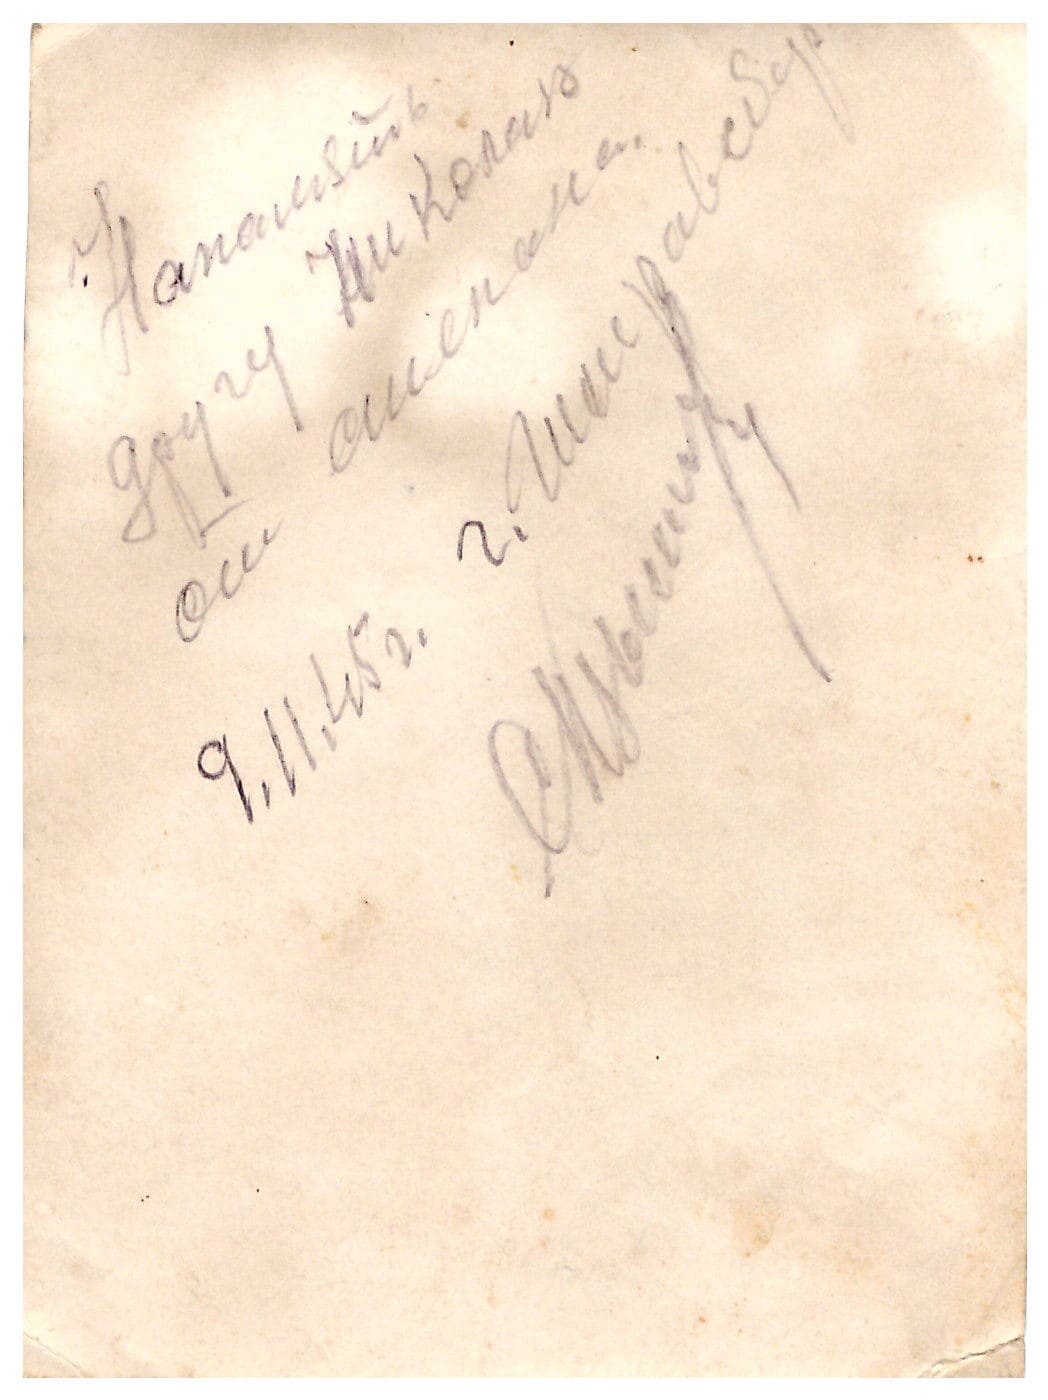 На память
другу Николаю
от Степана.
9.11.45г. г.